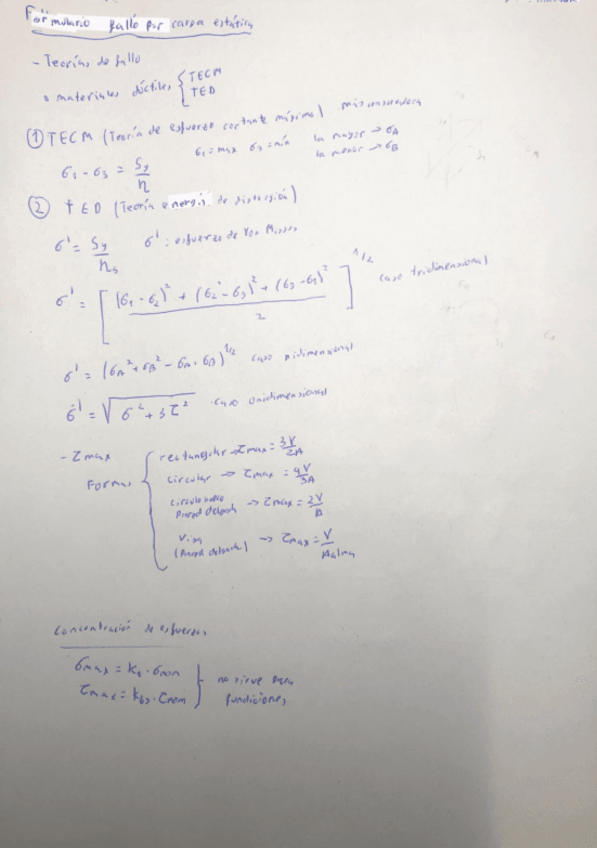 Formulario fallo por carga estática
- Teorías de fallo
o materiales dúctiles { TECM
TED
① TECM (Teoría de esfuerzo cortante máximo) más conservadora
σ1 = max σ3 = mín la mayor → σA
la menor → σB
σ1 - σ3 = Sy/η
② TED (Teoría energía de distorsión)
σ' = Sy/ηs σ': esfuerzo de Von Misses
σ' = [ ((σ1 - σ2)² + (σ2 - σ3)² + (σ3 - σ1)²) / 2 ]^1/2 caso tridimensional
σ' = (σA² + σB² - σA·σB)^1/2 caso bidimensional
σ' = √(σ² + 3τ²) caso unidimensional
- τmax
Formas { rectangular → τmax = 3V/2A
circular → τmax = 4V/3A
circulo hueco
Pared delgada → τmax = 2V/A
Viga
(Pared delgada) → τmax = V/Aalma
Concentración de esfuerzos
σmax = kt · σnom } no sirve para
τmax = kts · τnom } fundiciones